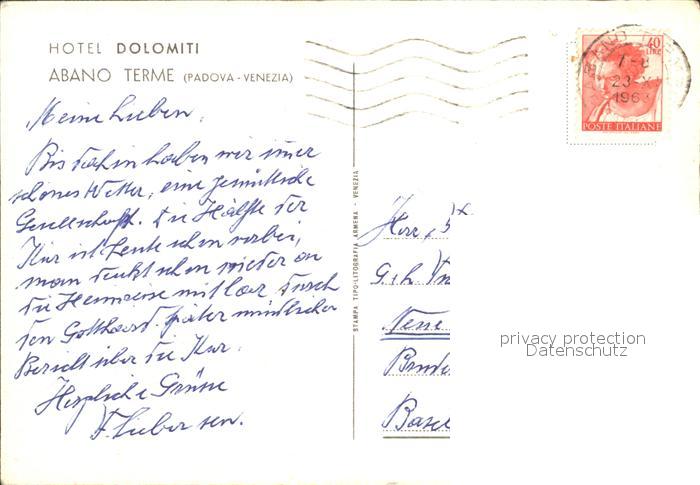 HOTEL DOLOMITI
ABANO TERME (PADOVA - VENEZIA)
Meine Lieben,
Bis dahin haben wir imer
schönes Wetter, eine gemütliche
Gesellschaft. Die Hälfte der
Kur ist heute schon vorbei,
man denkt schon wieder an
die Heimreise mit Car durch
den Gotthard. Später mündlicher
Bericht über die Kur.
Herzliche Grüsse
F. Liebersen.
STAMPA TIPO-LITOGRAFIA ARMENA - VENEZIA
40
LIRE
23 X
1963
POSTE ITALIANE
Herr
Basel
privacy protection
Datenschutz